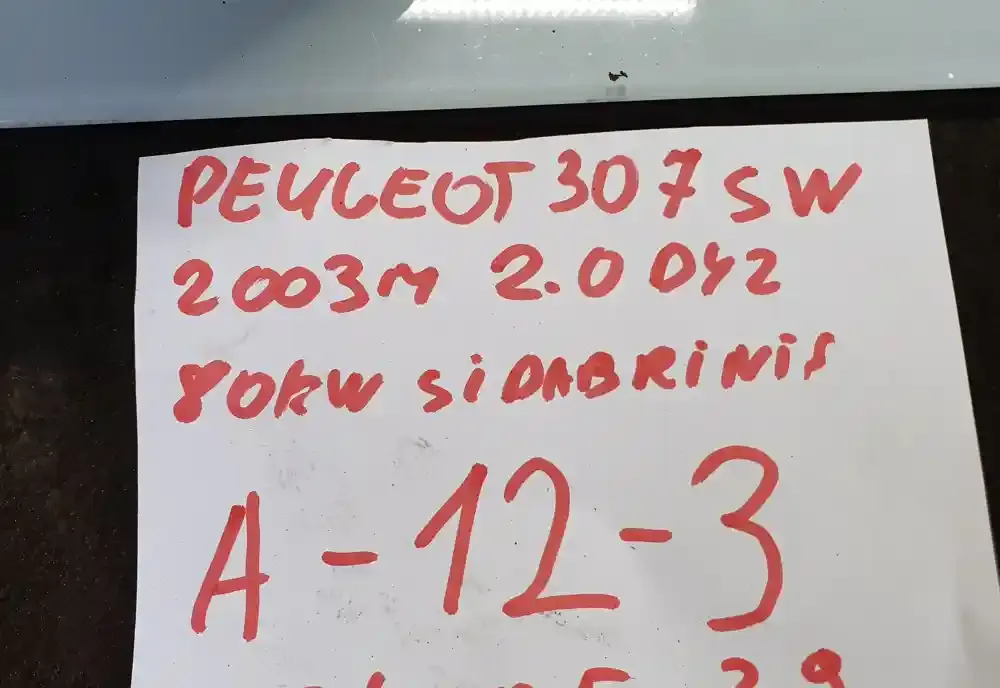 PEUGEOT 307 SW
2003m 2.0 DYZ
80kW SiDABRiNiS
A-12-3